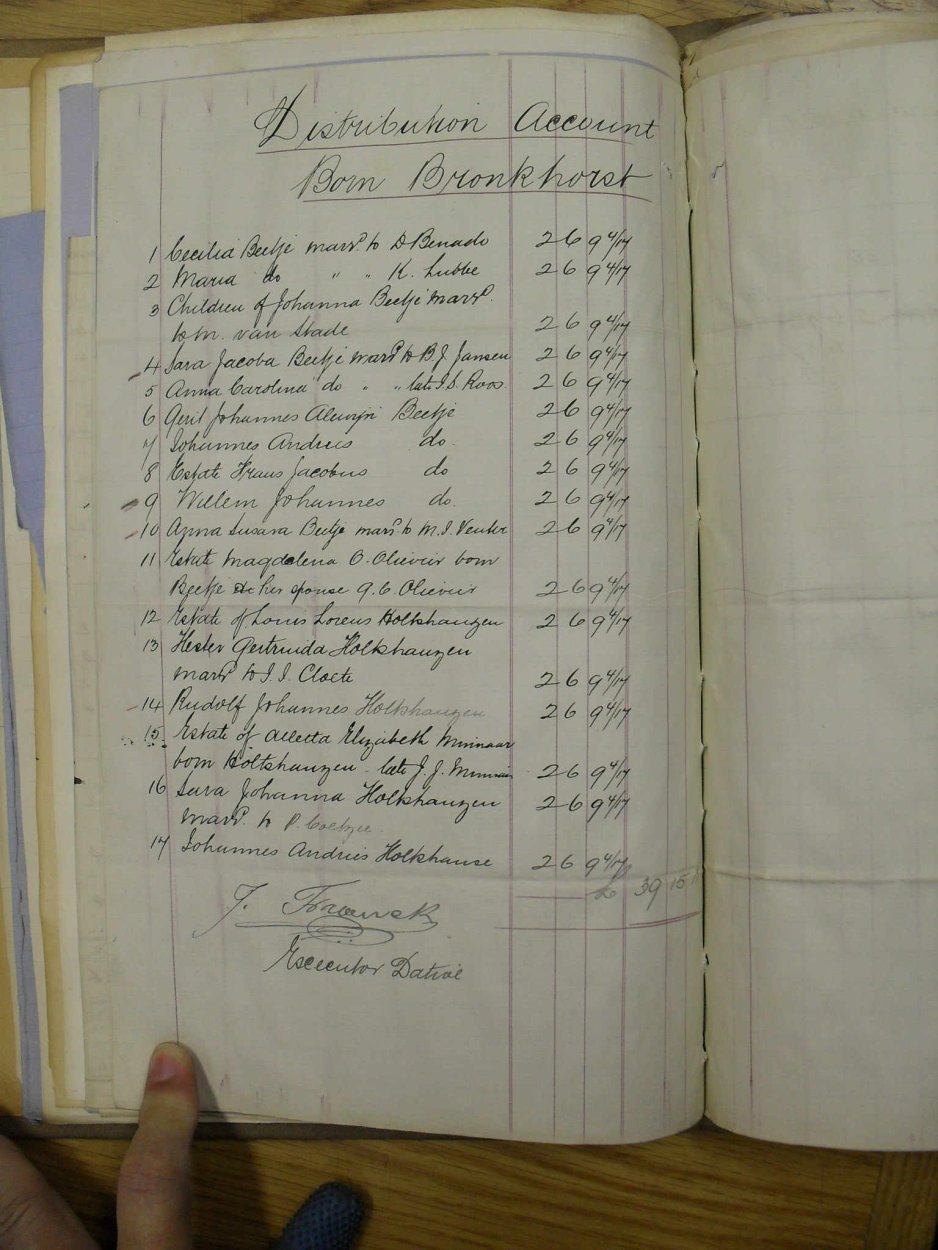 Distribution Account
Born Bronkhorst
1 Cecilia Beetje marrd to D Benado 2 6 9 4/17
2 Maria do " " K. Lubbe 2 6 9 4/17
3 Children of Johanna Beetje marrd.
to M. van Stade 2 6 9 4/17
4 Sara Jacoba Beetje marrd to B J. Jansen 2 6 9 4/17
5 Anna Carolina do " " late I. S. Roos. 2 6 9 4/17
6 Gerit Johannes Alewijn Beetje 2 6 9 4/17
7 Johannes Andries do. 2 6 9 4/17
8 Estate Frans Jacobus do 2 6 9 4/17
9 Willem Johannes do. 2 6 9 4/17
10 Anna Susara Beetje marrd to M. J. Venter 2 6 9 4/17
11 Estate Magdalena O. Olivier born
Beetje & her spouse G. C. Olivier 2 6 9 4/17
12 Estate of Louis Lorens Holtshauzen 2 6 9 4/17
13 Hester Gertruida Holtshauzen
marrd to I. I. Cloete 2 6 9 4/17
14 Rudolf Johannes Holtshauzen 2 6 9 4/17
15 Estate of Alletta Elizabeth Minnaar
born Holtshauzen late J. J. Minnaar 2 6 9 4/17
16 Sara Johanna Holtshauzen 2 6 9 4/17
marrd. to P. Coetzee.
17 Johannes Andries Holtshause 2 6 9 4/17
£ 39 15 1
J.
Excecutor Dative